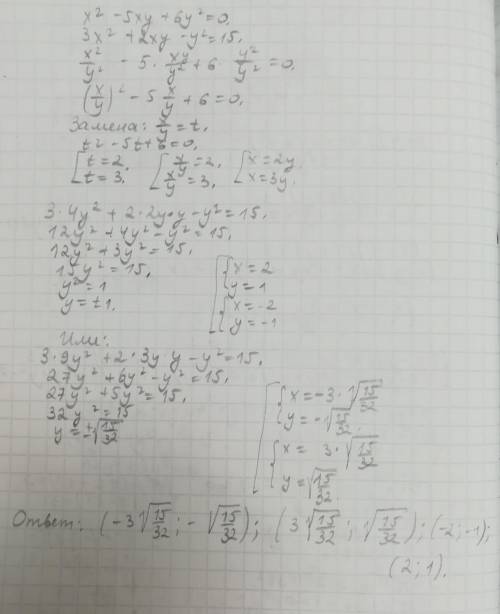 x² - 5xy + 6y² = 0,
3x² + 2xy - y² = 15,
x²/y² - 5 · xy/y² + 6 · y²/y² = 0,
(x/y)² - 5 x/y + 6 = 0,
Замена: x/y = t,
t² - 5t + 6 = 0,
[t = 2, t = 3. [x/y = 2, x/y = 3, [x = 2y, x = 3y.
3 · 4y² + 2 · 2y · y - y² = 15,
12y² + 4y² - y² = 15,
12y² + 3y² = 15,
15y² = 15,
y² = 1
y = ±1,
[{x = 2
y = 1
{x = -2
y = -1
Или:
3 · 9y² + 2 · 3y y - y² = 15,
27y² + 6y² - y² = 15,
27y² + 5y² = 15,
32y² = 15
y = ±√(15/32)
[{x = -3 · √(15/32)
y = -√(15/32),
{x = 3 · √(15/32)
y = √(15/32).
Ответ: (-3√(15/32); -√(15/32)); (3√(15/32); √(15/32)); (-2; -1);
(2; 1).